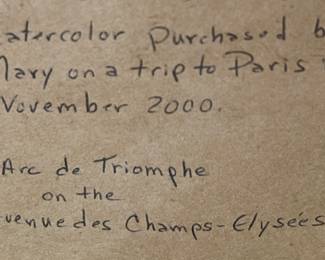 atercolor Purchased b
Mary on a trip to Paris
November 2000.
Arc de Triomphe
on the
venue des Champs-Elysées